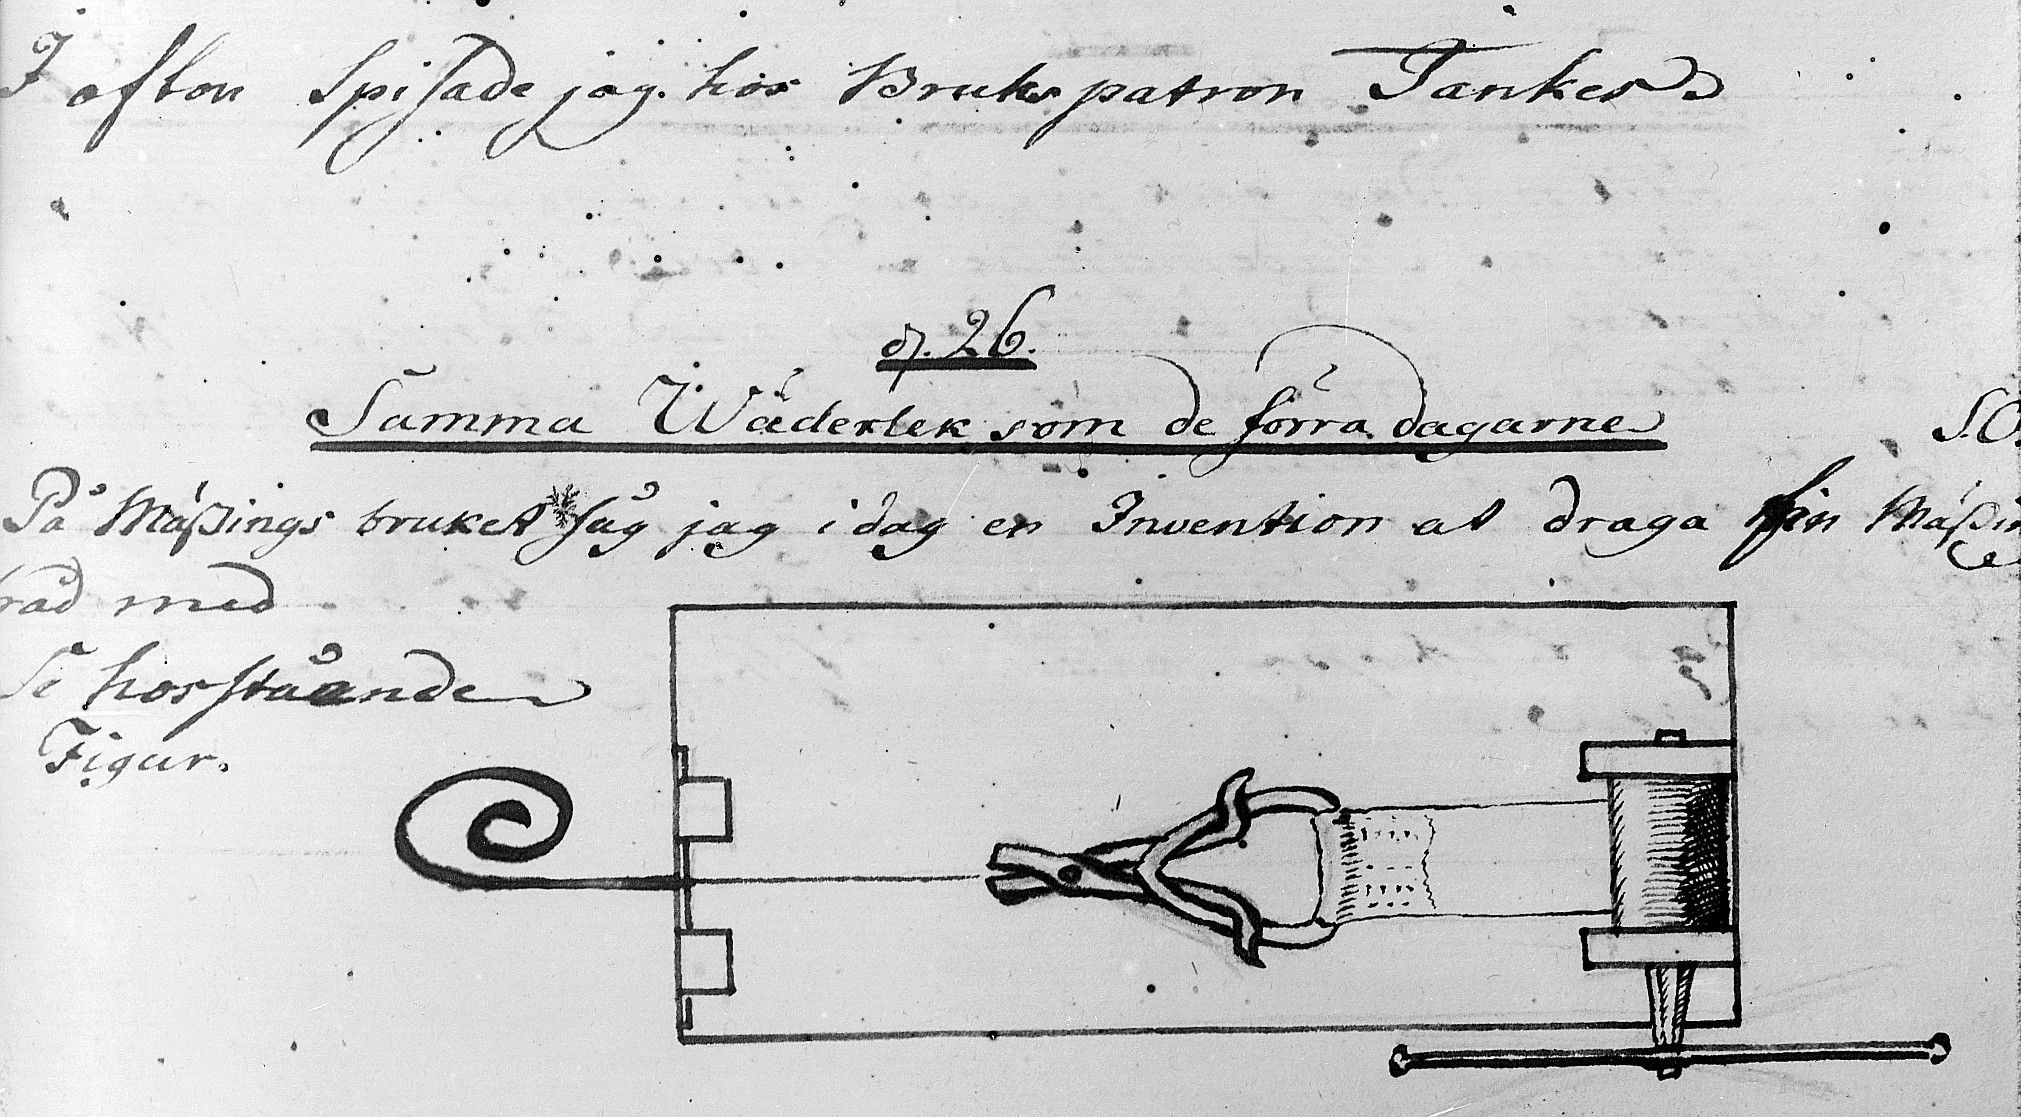 I afton Spisade jag hos Brukspatron Tankes
d. 26.
Samma Wäderlek som de förra dagarne
S.O.
På Mäßings bruket såg jag i dag en Invention at draga fin Mäßing
råd med
Se hosstående
Figur.